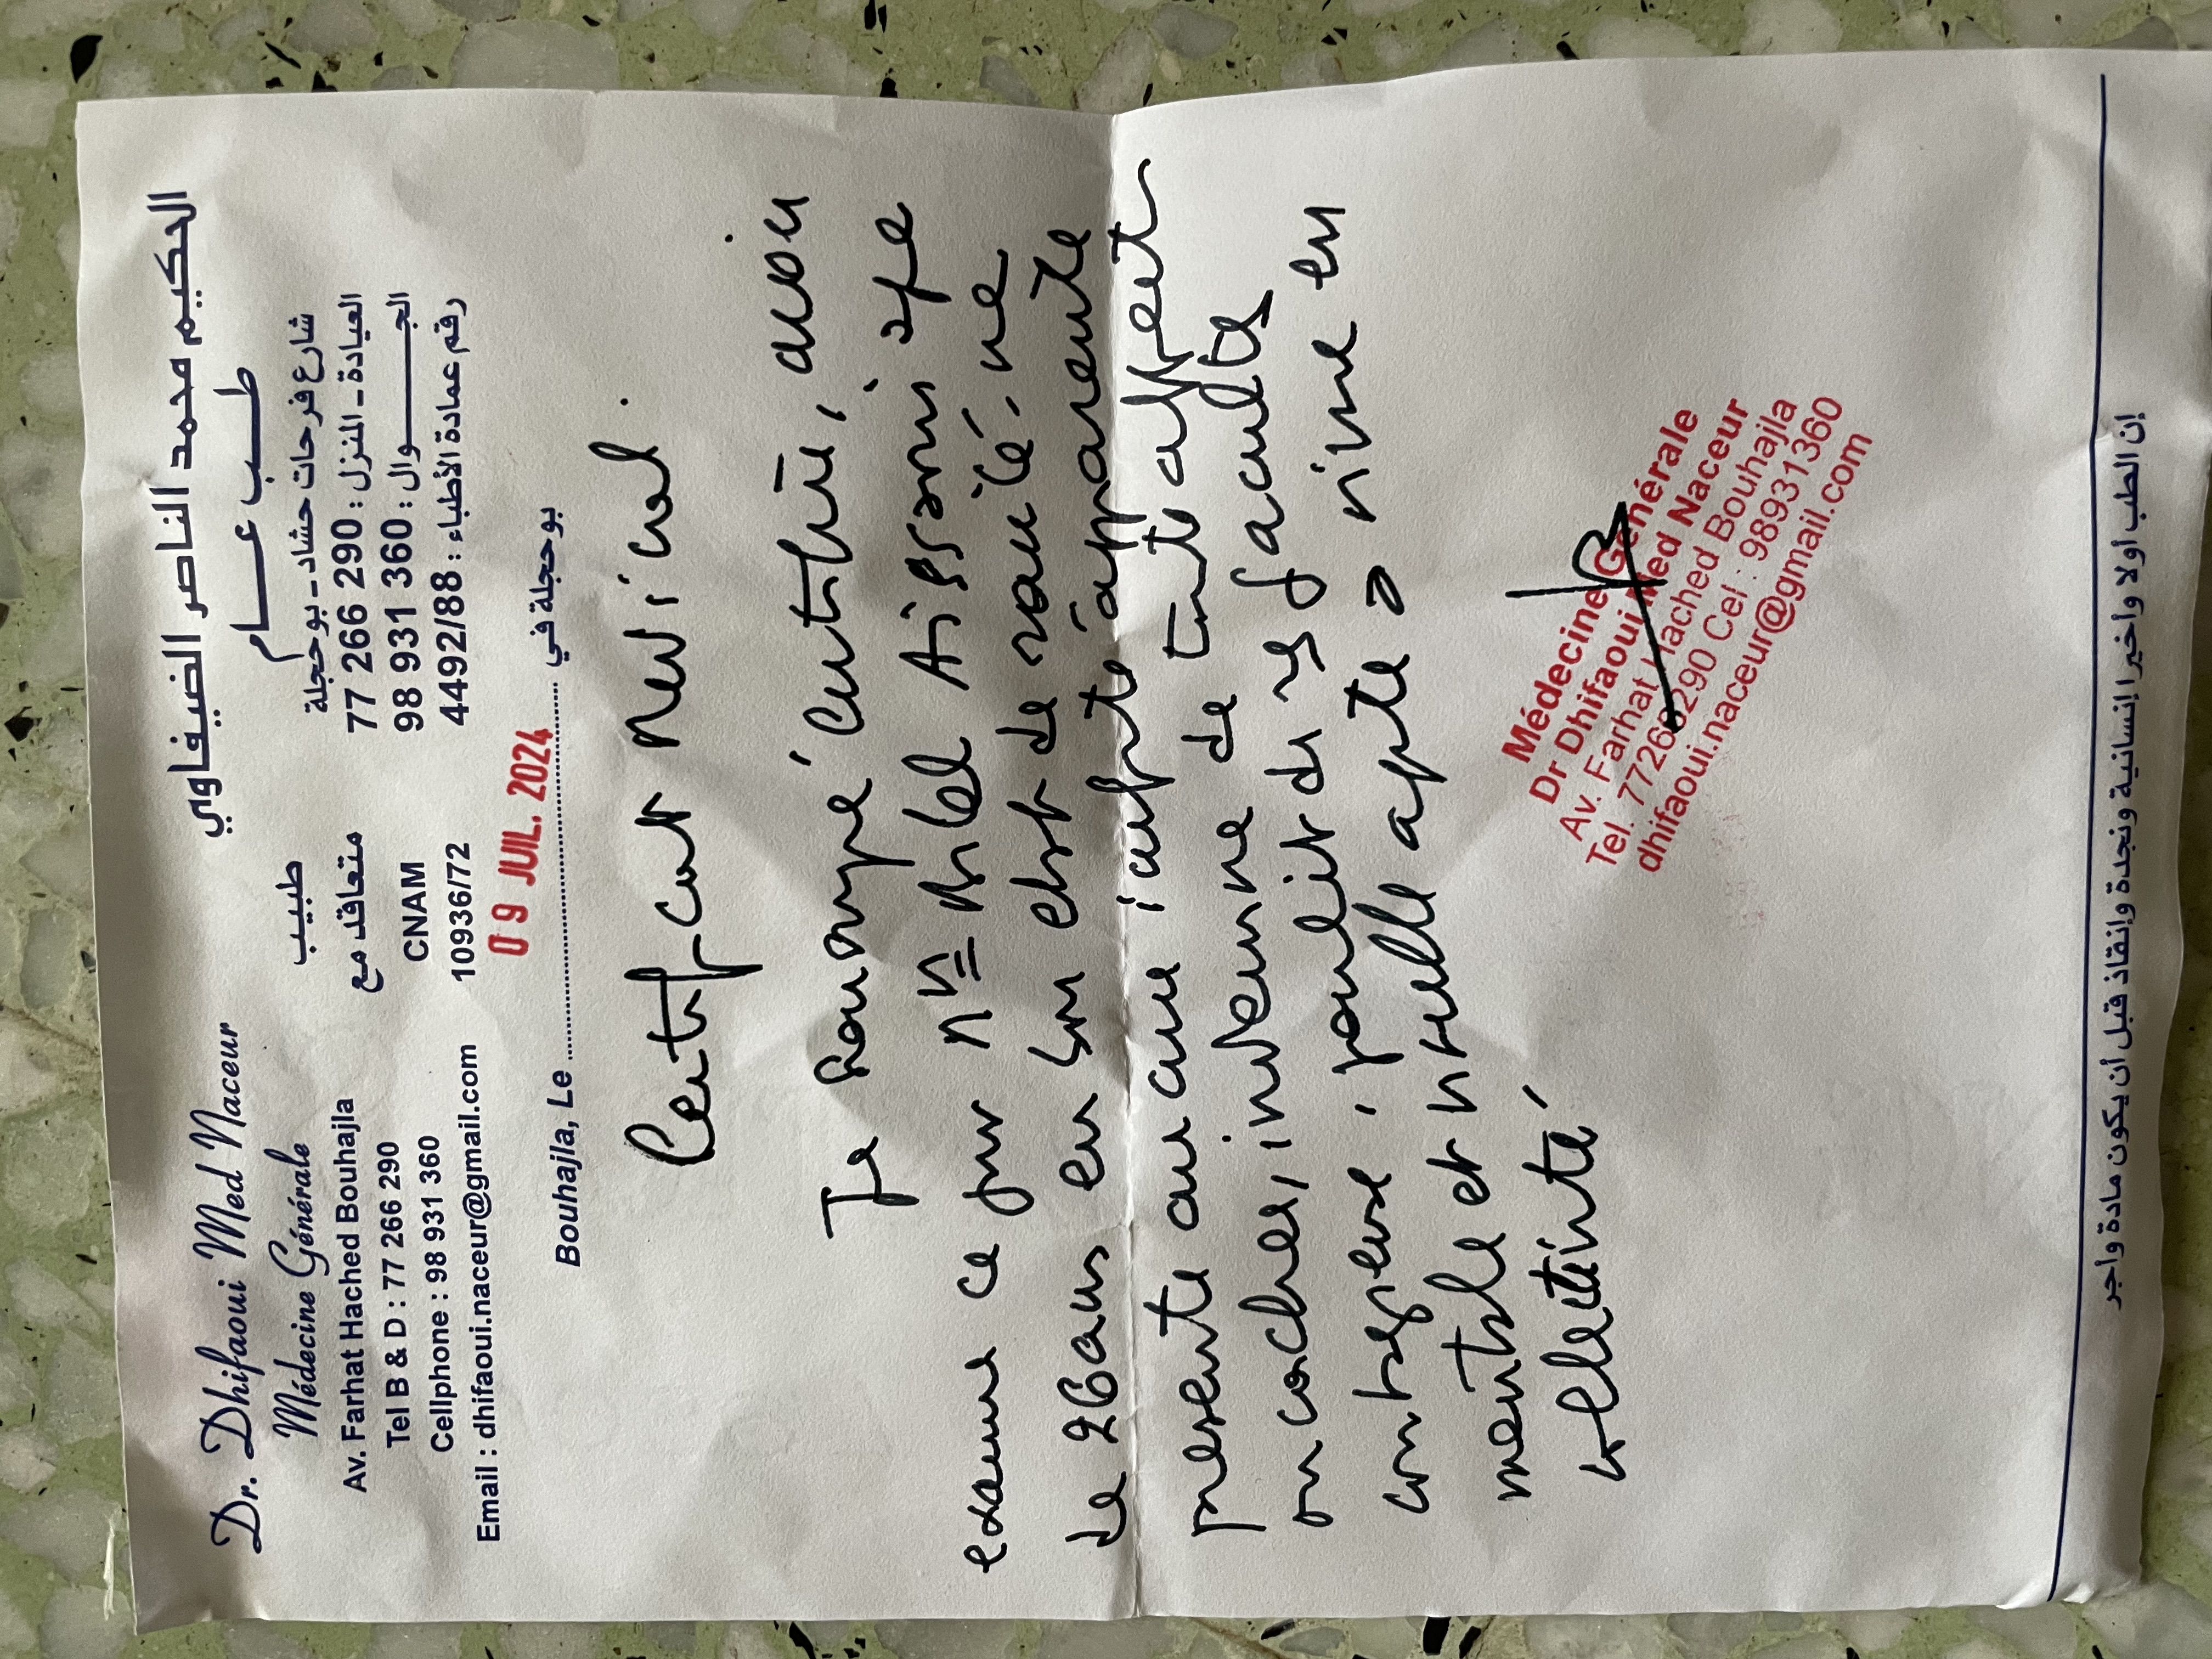 Dr. Dhifaoui Med Naceur
Médecine Générale
Av. Farhat Hached Bouhajla
Tel B & D : 77 266 290
Cellphone : 98 931 360
Email : dhifaoui.naceur@gmail.com
طبيب
متعاقد مع
CNAM
10936/72
الحكيم محمد الناصر الضيفاوي
طب عام
شارع فرحات حشاد - بوحجلة
العيادة - المنزل : 290 266 77
الجوال : 360 931 98
رقم عمادة الأطباء : 4492/88
09 JUIL. 2024
Bouhajla, Le ........ بوحجلة في
Certificat Médical
Je soussigné certifie, avoir
examiné ce jour Aissaoui âgé
de 26 ans en bon état de santé, ne
présente aucune apparente
indemne de toute
contagieuse, de ses facultés
mentale et apte à vivre en
Médecine Générale
Dr Dhifaoui Med Naceur
Av. Farhat Hached Bouhajla
Tel. 77266290 Cel : 98931360
dhifaoui.naceur@gmail.com
إن الطب أولا وأخيرا إنسانية ونجدة وإنقاذ قبل أن يكون مادة واجر